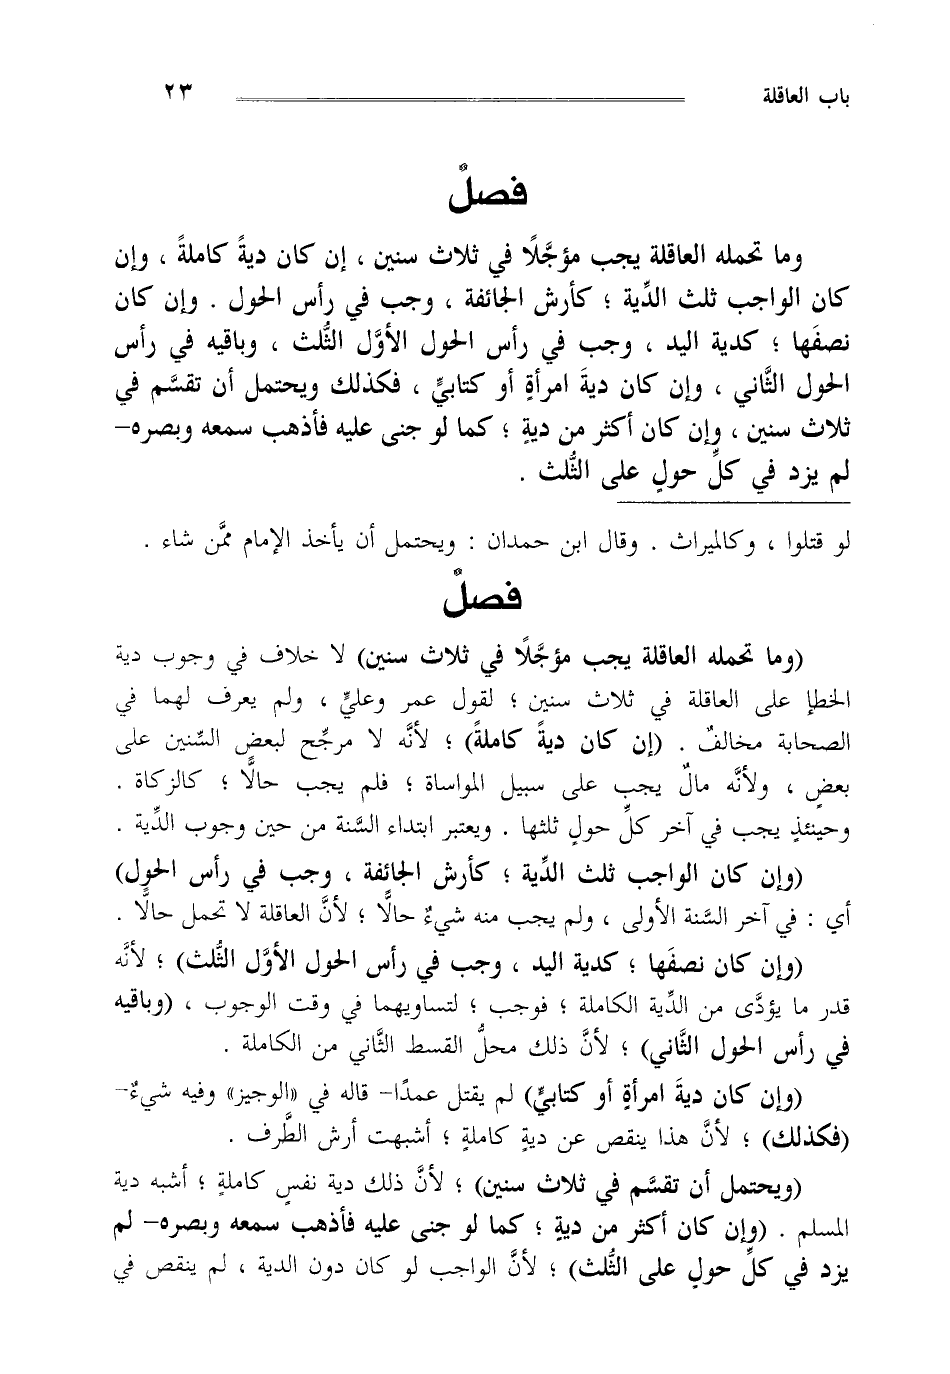 باب العاقلة ٢٣
فصلٌ
وما تحمله العاقلة يجب مؤجَّلًا في ثلاث سنين ، إن كان ديةً كاملةً ، وإن
كان الواجب ثلث الدِّية ؛ كأرش الجائفة ، وجب في رأس الحول . وإن كان
نصفَها ؛ كدية اليد ، وجب في رأس الحول الأوَّل الثُّلث ، وباقيه في رأس
الحول الثَّاني ، وإن كان ديةَ امرأةٍ أو كتابيٍّ ، فكذلك ويحتمل أن تقسَّم في
ثلاث سنين ، وإن كان أكثر من ديةٍ ؛ كما لو جنى عليه فأذهب سمعه وبصره–
لم يزد في كلِّ حولٍ على الثُّلث .
لو قتلوا ، وكالميراث . وقال ابن حمدان : ويحتمل أن يأخذ الإمام ممَّن شاء .
فصلٌ
(وما تحمله العاقلة يجب مؤجَّلًا في ثلاث سنين) لا خلاف في وجوب دية
الخطإ على العاقلة في ثلاث سنين ؛ لقول عمر وعليٍّ ، ولم يعرف لهما في
الصحابة مخالفٌ . (إن كان ديةً كاملةً) ؛ لأنَّه لا مرجِّح لبعضِ السِّنين على
بعضٍ ، ولأنَّه مالٌ يجب على سبيل المواساة ؛ فلم يجب حالًّا ؛ كالزكاة .
وحينئذٍ يجب في آخر كلِّ حولٍ ثلثها . ويعتبر ابتداء السَّنة من حين وجوب الدِّية .
(وإن كان الواجب ثلث الدِّية ؛ كأرش الجائفة ، وجب في رأس الحولِ)
أي : في آخر السَّنة الأولى ، ولم يجب منه شيءٌ حالًّا ؛ لأنَّ العاقلة لا تحمل حالًّا .
(وإن كان نصفَها ؛ كدية اليد ، وجب في رأس الحول الأوَّل الثُّلث) ؛ لأنَّه
قدر ما يؤدَّى من الدِّية الكاملة ؛ فوجب ؛ لتساويهما في وقت الوجوب ، (وباقيه
في رأس الحول الثَّاني) ؛ لأنَّ ذلك محلُّ القسط الثَّاني من الكاملة .
(وإن كان ديةَ امرأةٍ أو كتابيٍّ) لم يقتل عمدًا– قاله في «الوجيز» وفيه شيءٌ–
(فكذلك) ؛ لأنَّ هذا ينقص عن ديةٍ كاملةٍ ؛ أشبهت أرش الطَّرف .
(ويحتمل أن تقسَّم في ثلاث سنين) ؛ لأنَّ ذلك دية نفسٍ كاملةٍ ؛ أشبه دية
المسلم . (وإن كان أكثر من ديةٍ ؛ كما لو جنى عليه فأذهب سمعه وبصره– لم
يزد في كلِّ حولٍ على الثُّلث) ؛ لأنَّ الواجب لو كان دون الدية ، لم ينقص في